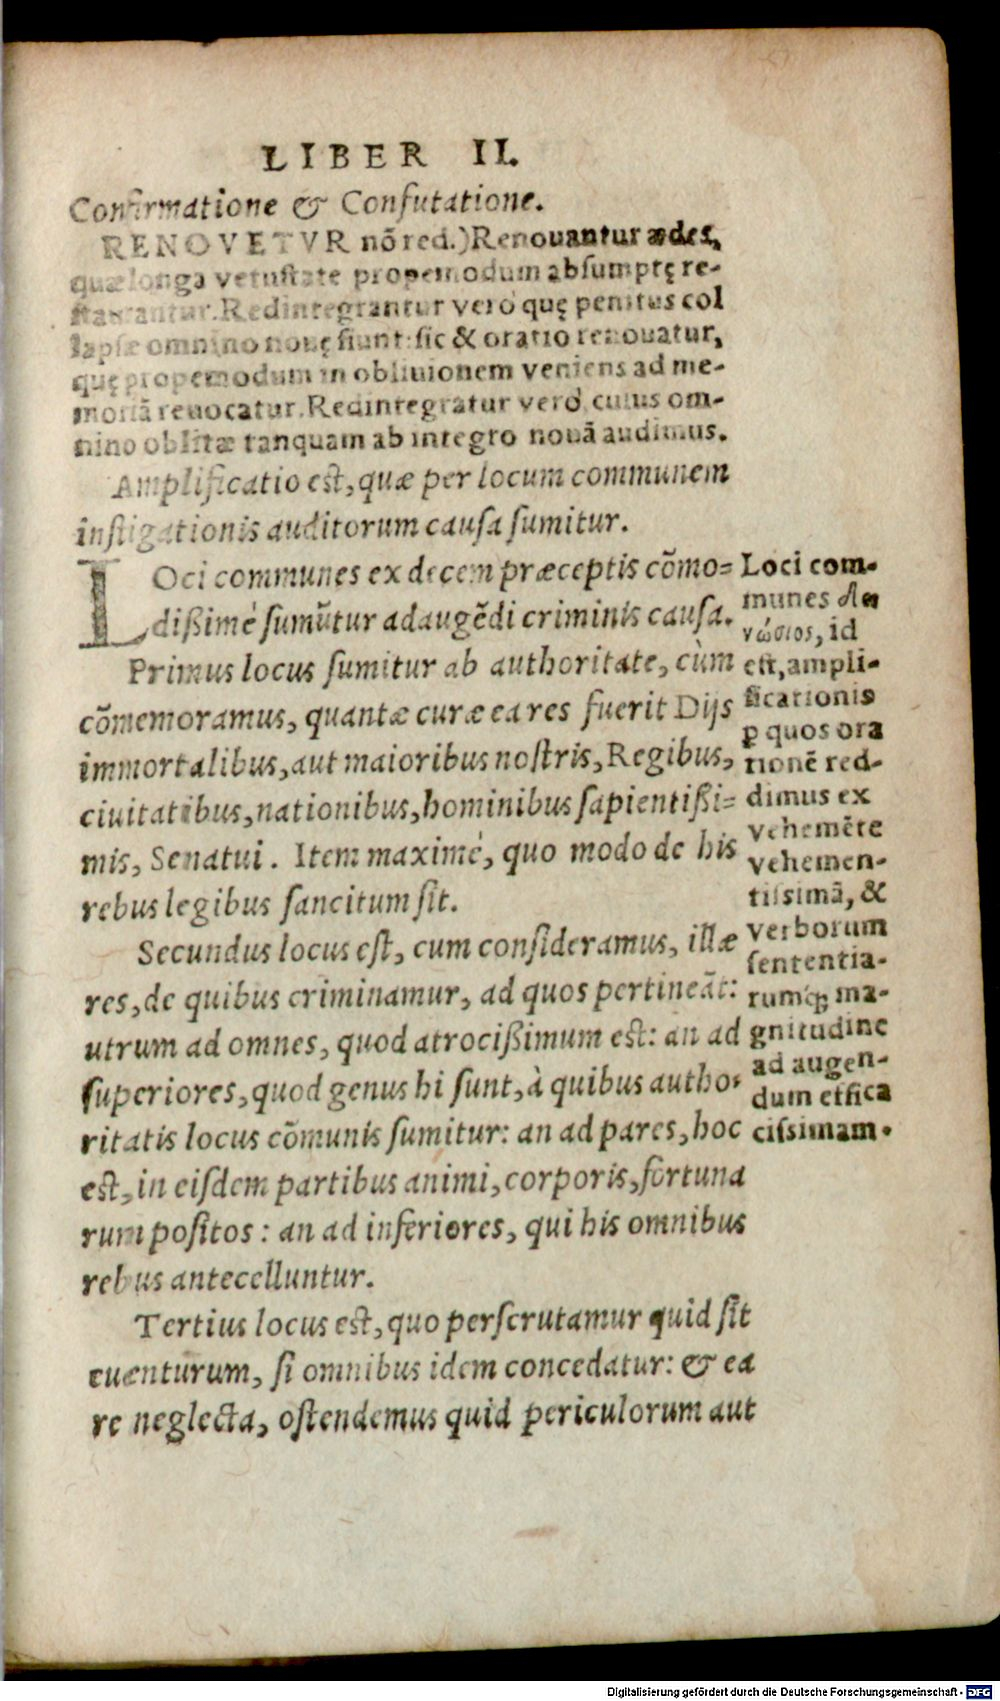 LIBER II.
Confirmatione & Confutatione.
RENOVETVR nõ red.) Renouantur ædes,
quæ longa vetustate propemodum absumptę re-
staurantur. Redintegrantur verò quę penitus col
lapsæ omnino nouę fiunt: sic & oratio renouatur,
quę propemodum in obliuionem veniens ad me-
moriã reuocatur. Redintegratur verò, cuius om-
nino oblitæ tanquam ab integro nouã audimus.
Amplificatio est, quæ per locum communem
instigationis auditorum causa sumitur.
LOci communes ex decem præceptis cõmo=
dißimè sumũtur adaugẽdi criminis causa.
Primus locus sumitur ab authoritate, cùm
cõmemoramus, quantæ curæ ea res fuerit Dijs
immortalibus, aut maioribus nostris, Regibus,
ciuitatibus, nationibus, hominibus sapientißi=
mis, Senatui. Item maximè, quo modo de his
rebus legibus sancitum sit.
Secundus locus est, cum consideramus, illæ
res, de quibus criminamur, ad quos pertineãt:
utrum ad omnes, quod atrocißimum est: an ad
superiores, quod genus hi sunt, à quibus autho-
ritatis locus cõmunis sumitur: an ad pares, hoc
est, in eisdem partibus animi, corporis, fortuna
rum positos: an ad inferiores, qui his omnibus
rebus antecelluntur.
Tertius locus est, quo perscrutamur quid sit
euenturum, si omnibus idem concedatur: & ea
re neglecta, ostendemus quid periculorum aut
Loci com-
munes δει
νώσιος, id
est, ampli-
ficationis
ꝑ quos ora
tionẽ red-
dimus ex
vehemẽte
vehemen-
tissimã, &
verborum
sententia-
rumq́; ma-
gnitudine
ad augen-
dum effica
cissimam.
Digitalisierung gefördert durch die Deutsche Forschungsgemeinschaft - DFG